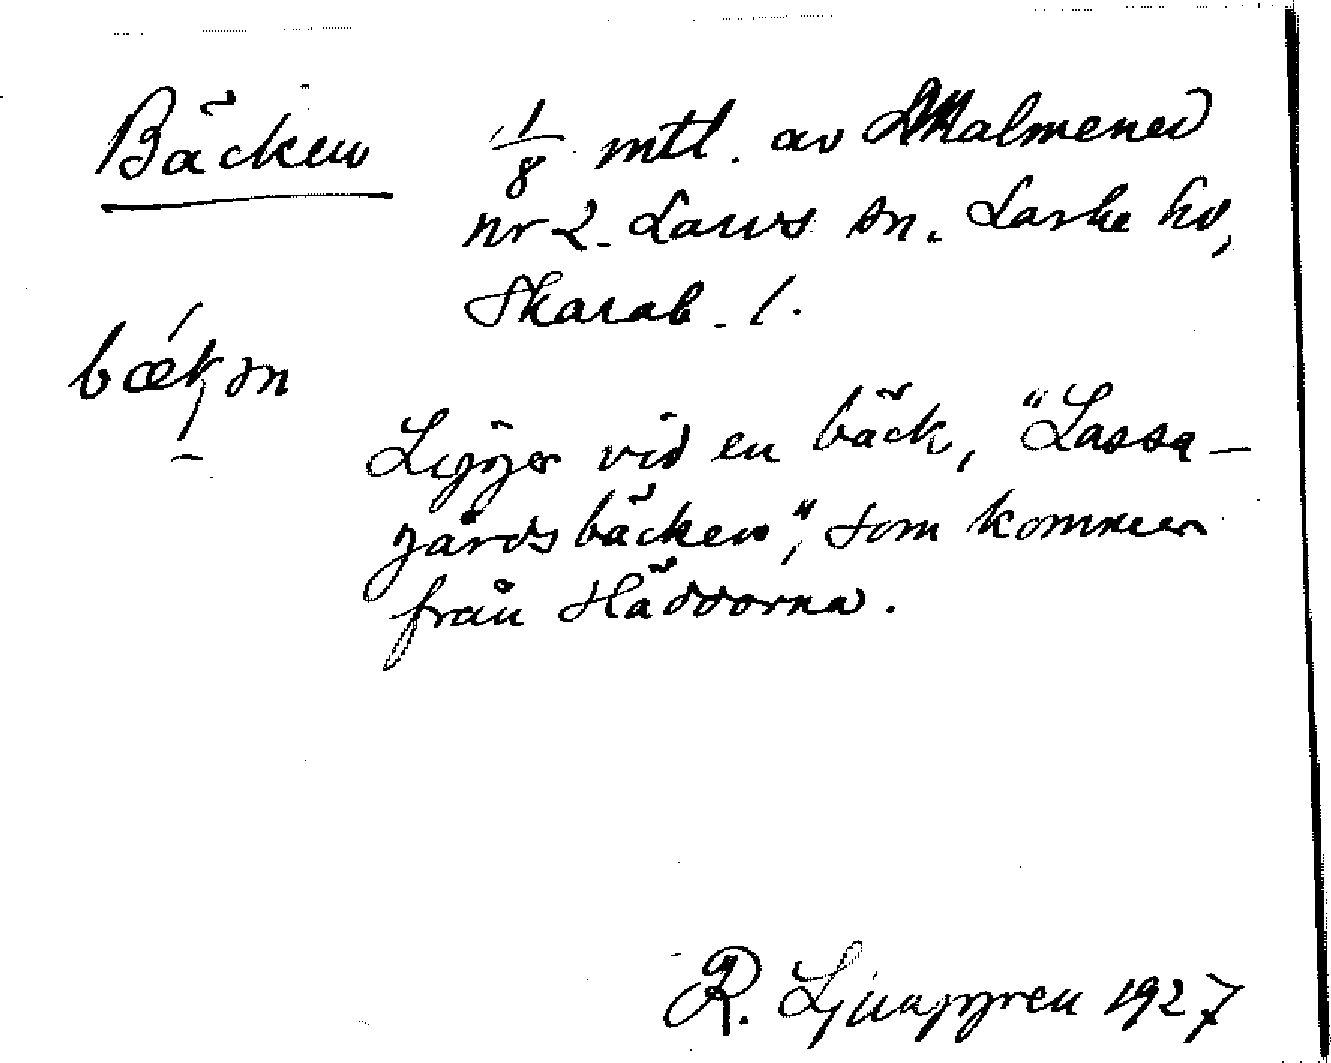 Bäcken 1/8 mtl. av Malmened
nr 2. Larvs sn. Laske hd,
Skarab. l.
bæʹkən
Ligger vid en bäck, "Lassa-
gårdsbäcken", som kommer
från Häddorna.
R. Ljunggren 1927